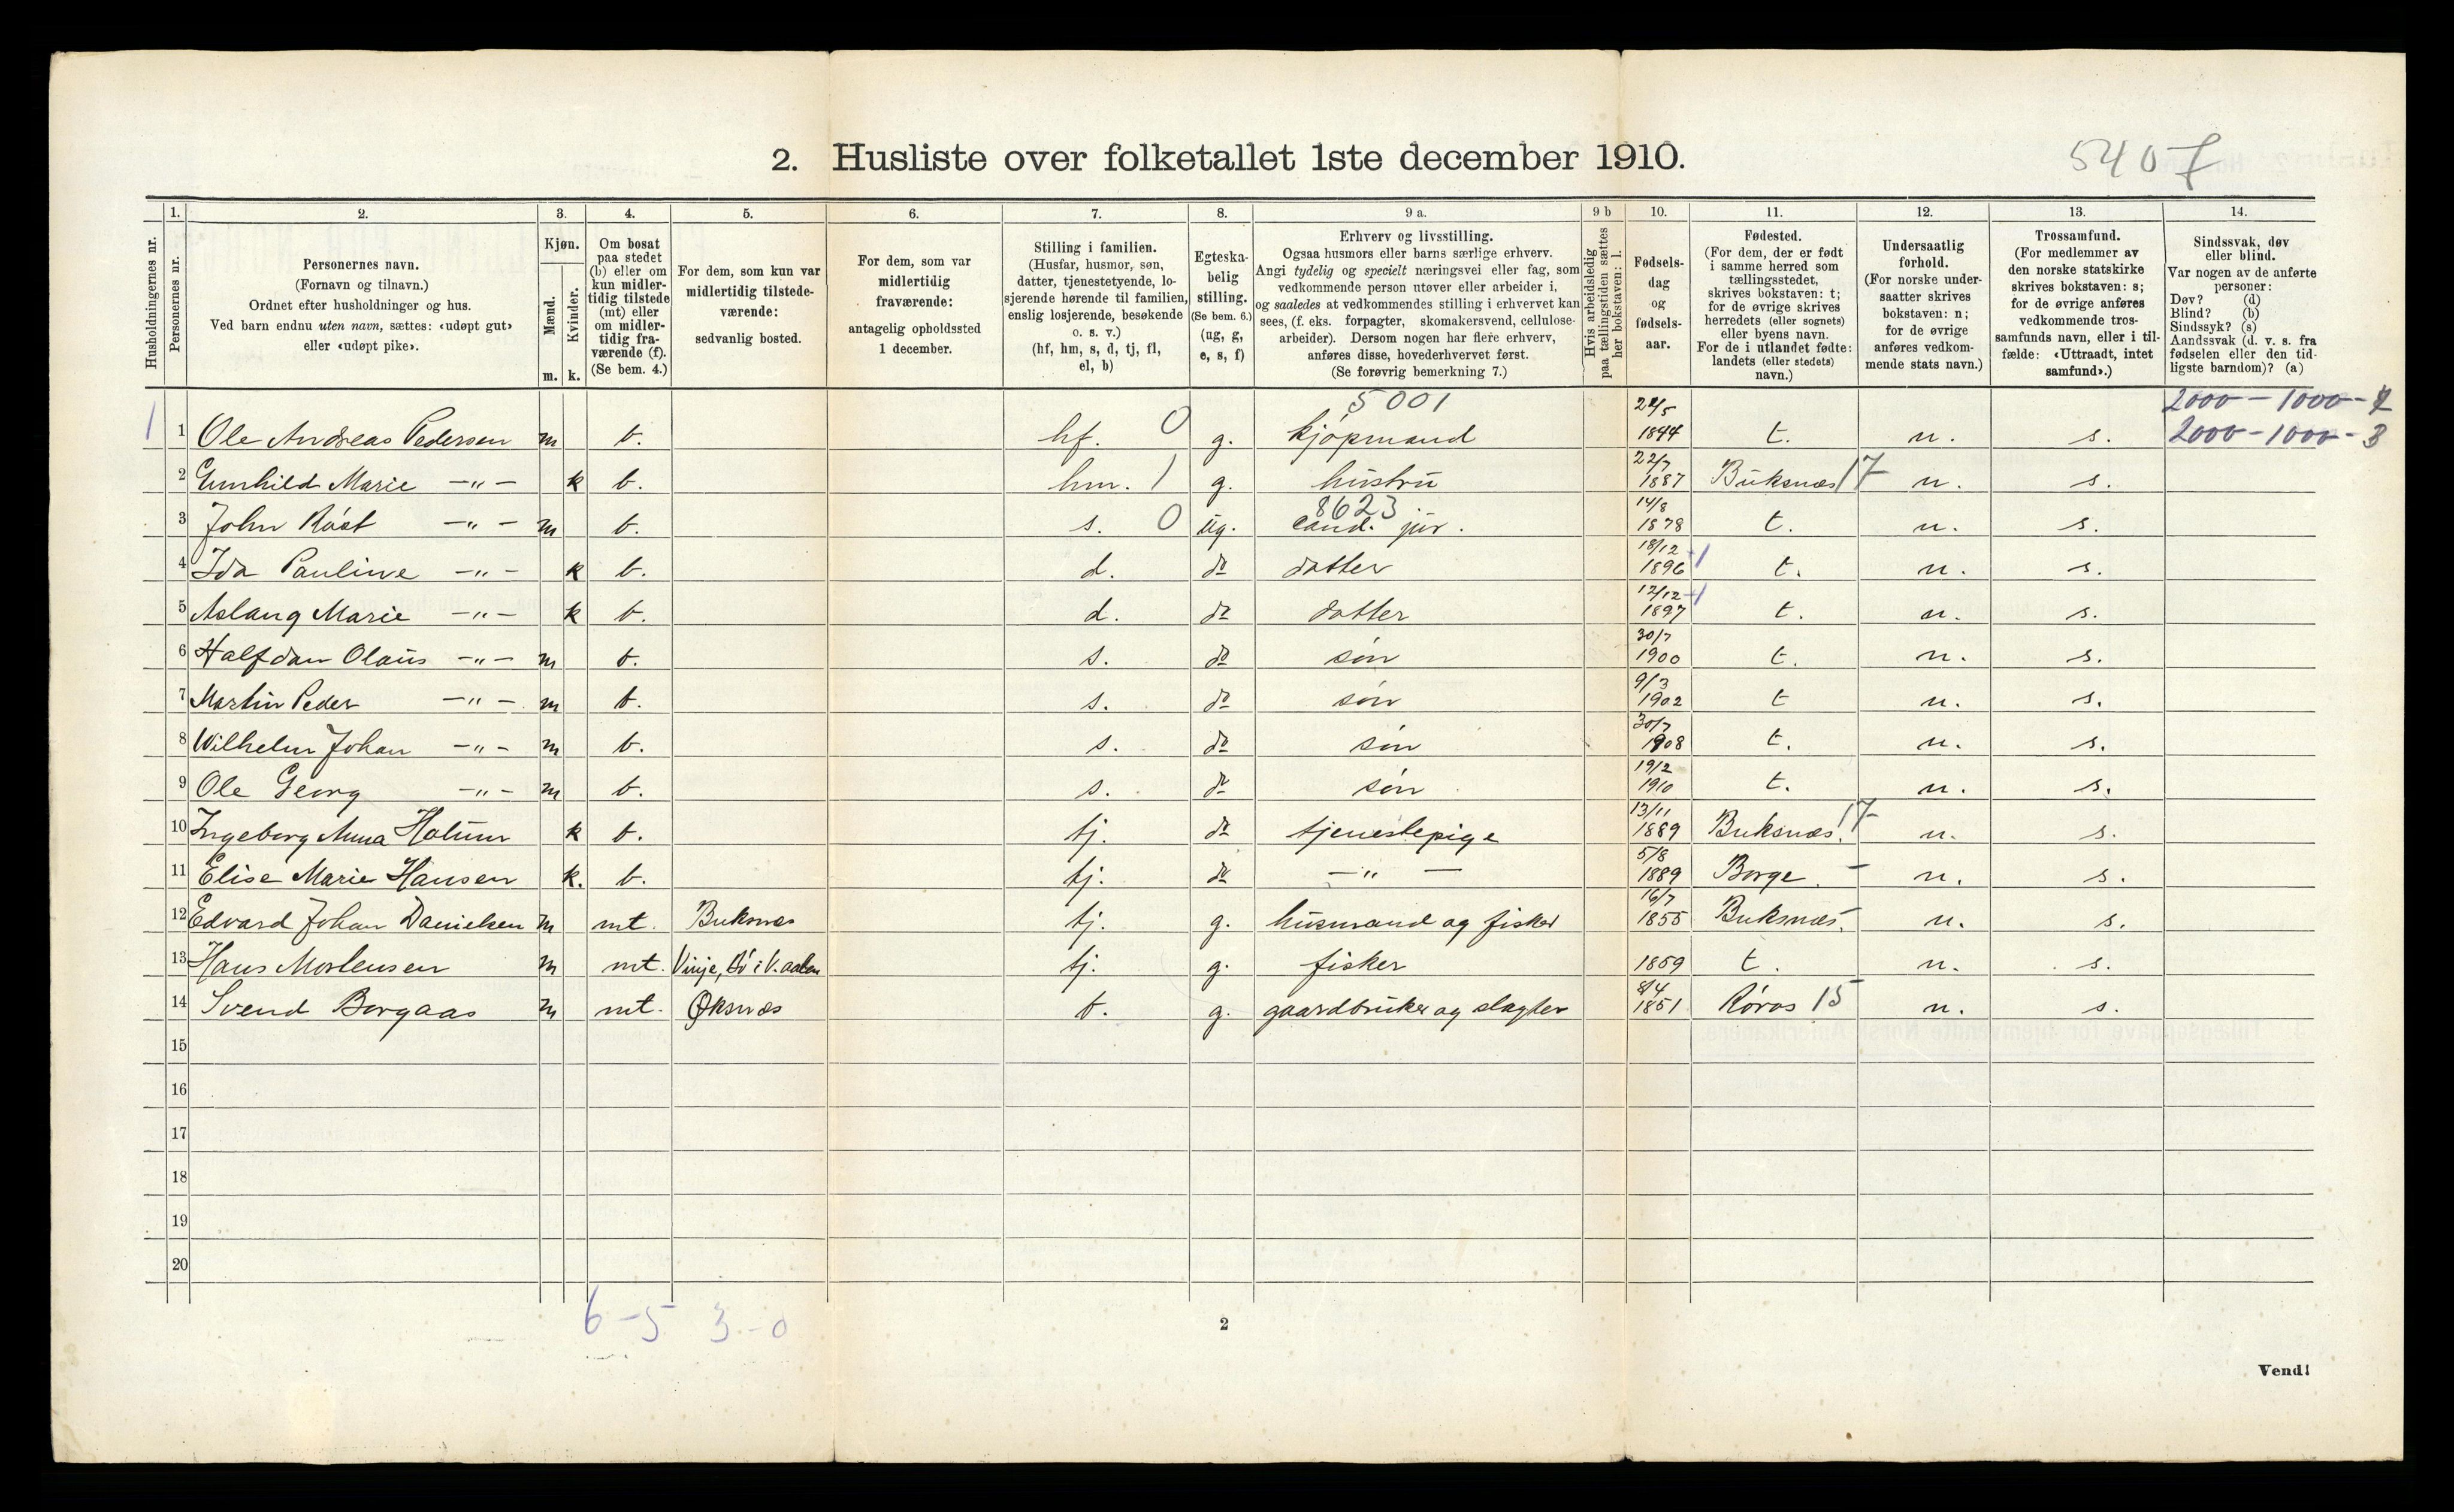 2. Husliste over folketallet 1ste december 1910.
5407
Husholdningernes nr.
1.
Personernes nr.
2.
Personernes navn.
(Fornavn og tilnavn.)
Ordnet efter husholdninger og hus.
Ved barn endnu uten navn, sættes: «udøpt gut»
eller «udøpt pike».
3.
Kjøn.
Mænd.
Kvinder.
m. k.
4.
Om bosat
paa stedet
(b) eller om
kun midler-
tidig tilstede
(mt) eller
om midler-
tidig fra-
værende (f).
(Se bem. 4.)
5.
For dem, som kun var
midlertidig tilstede-
værende:
sedvanlig bosted.
6.
For dem, som var
midlertidig
fraværende:
antagelig opholdssted
1 december.
7.
Stilling i familien.
(Husfar, husmor, søn,
datter, tjenestetyende, lo-
sjerende hørende til familien,
enslig losjerende, besøkende
o. s. v.)
(hf, hm, s, d, tj, fl,
el, b)
8.
Egteska-
belig
stilling.
(Se bem. 6.)
(ug, g,
e, s, f)
9 a.
Erhverv og livsstilling.
Ogsaa husmors eller barns særlige erhverv.
Angi tydelig og specielt næringsvei eller fag, som
vedkommende person utøver eller arbeider i,
og saaledes at vedkommendes stilling i erhvervet kan
sees, (f. eks. forpagter, skomakersvend, cellulose-
arbeider). Dersom nogen har flere erhverv,
anføres disse, hovederhvervet først.
(Se forøvrig bemerkning 7.)
9 b
Hvis arbeidsledig
paa tællingstiden sættes
her bokstaven: l.
10.
Fødsels-
dag
og
fødsels-
aar.
11.
Fødested.
(For dem, der er født
i samme herred som
tællingsstedet,
skrives bokstaven: t;
for de øvrige skrives
herredets (eller sognets)
eller byens navn.
For de i utlandet fødte:
landets (eller stedets)
navn.)
12.
Undersaatlig
forhold.
(For norske under-
saatter skrives
bokstaven: n;
for de øvrige
anføres vedkom-
mende stats navn.)
13.
Trossamfund.
(For medlemmer av
den norske statskirke
skrives bokstaven: s;
for de øvrige anføres
vedkommende tros-
samfunds navn, eller i til-
fælde: «Uttraadt, intet
samfund».)
14.
Sindssvak, døv
eller blind.
Var nogen av de anførte
personer:
Døv? (d)
Blind? (b)
Sindssyk? (s)
Aandssvak (d. v. s. fra
fødselen eller den tid-
ligste barndom)? (a)
5001 2000-1000-
1 1 Ole Andreas Pedersen m b. hf. 0 g. kjøpmand 1844 t. n. s. 2000-1000-3
2 Gunhild Marie -"- k b. hm. 1 g. hustru 22/7 1887 Buksnæs 17 n. s.
3 John Røst -"- m b. s. 0 ug. 8623 cand. jur. 14/8 1878 t. n. s.
4 Ida Pauline -"- k b. d. do datter 18/12 1896 +1 t. n. s.
5 Aslaug Marie -"- k b. d. do datter 12/12 1897 +1 t. n. s.
6 Halfdan Olaus -"- m b. s. do søn 30/7 1900 t. n. s.
7 Martin Peder -"- m b. s. do søn 9/3 1902 t n. s.
8 Wilhelm Johan -"- m b. s. do søn 30/7 1908 t. n. s.
9 Ole Georg -"- m b. s. do søn 19/2 1910 t. n. s.
10 Ingeborg Anna Holum k b. tj. do tjenestepige 13/11 1889 Buksnæs. 17 n. s.
11 Elise Marie Hansen k. b. tj. do -"- 5/8 1889 Borge. - n. s.
12 Edvard Johan Danielsen m mt. Buksnæs tj. g. husmand og fisker 16/7 1855 Buksnæs. n. s.
13 Hans Mortensen m mt. Vinje, Bø i V.aalen tj. g. fisker 1859 t. n. s.
14 Svend Borgaas m mt. Øksnæs b. g. gaardbruker og slagter 8/4 1851 Røros 15 n. s.
15
16
17
18
19
20
6-5 3-0
2
Vend!